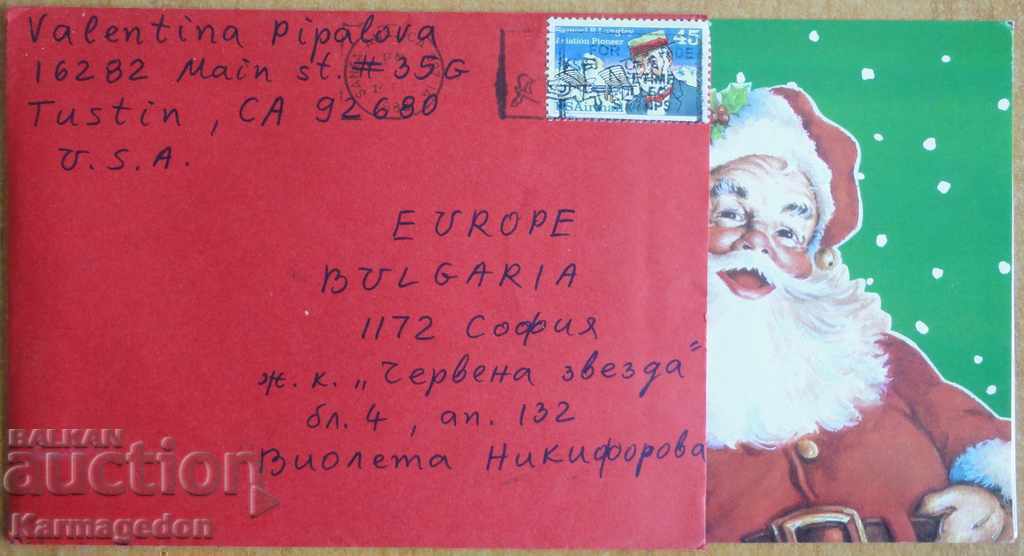 Valentina Pipalova
16282 Main st. # 35G
Tustin, CA 92680
U.S.A.
45
Aviation Pioneer
FOR
USAirmail
EUROPE
BULGARIA
1172 София
ж. к. „Червена звезда"
бл. 4, ап. 132
Виолета Никифорова
BALKAN
auction
Karmagedon